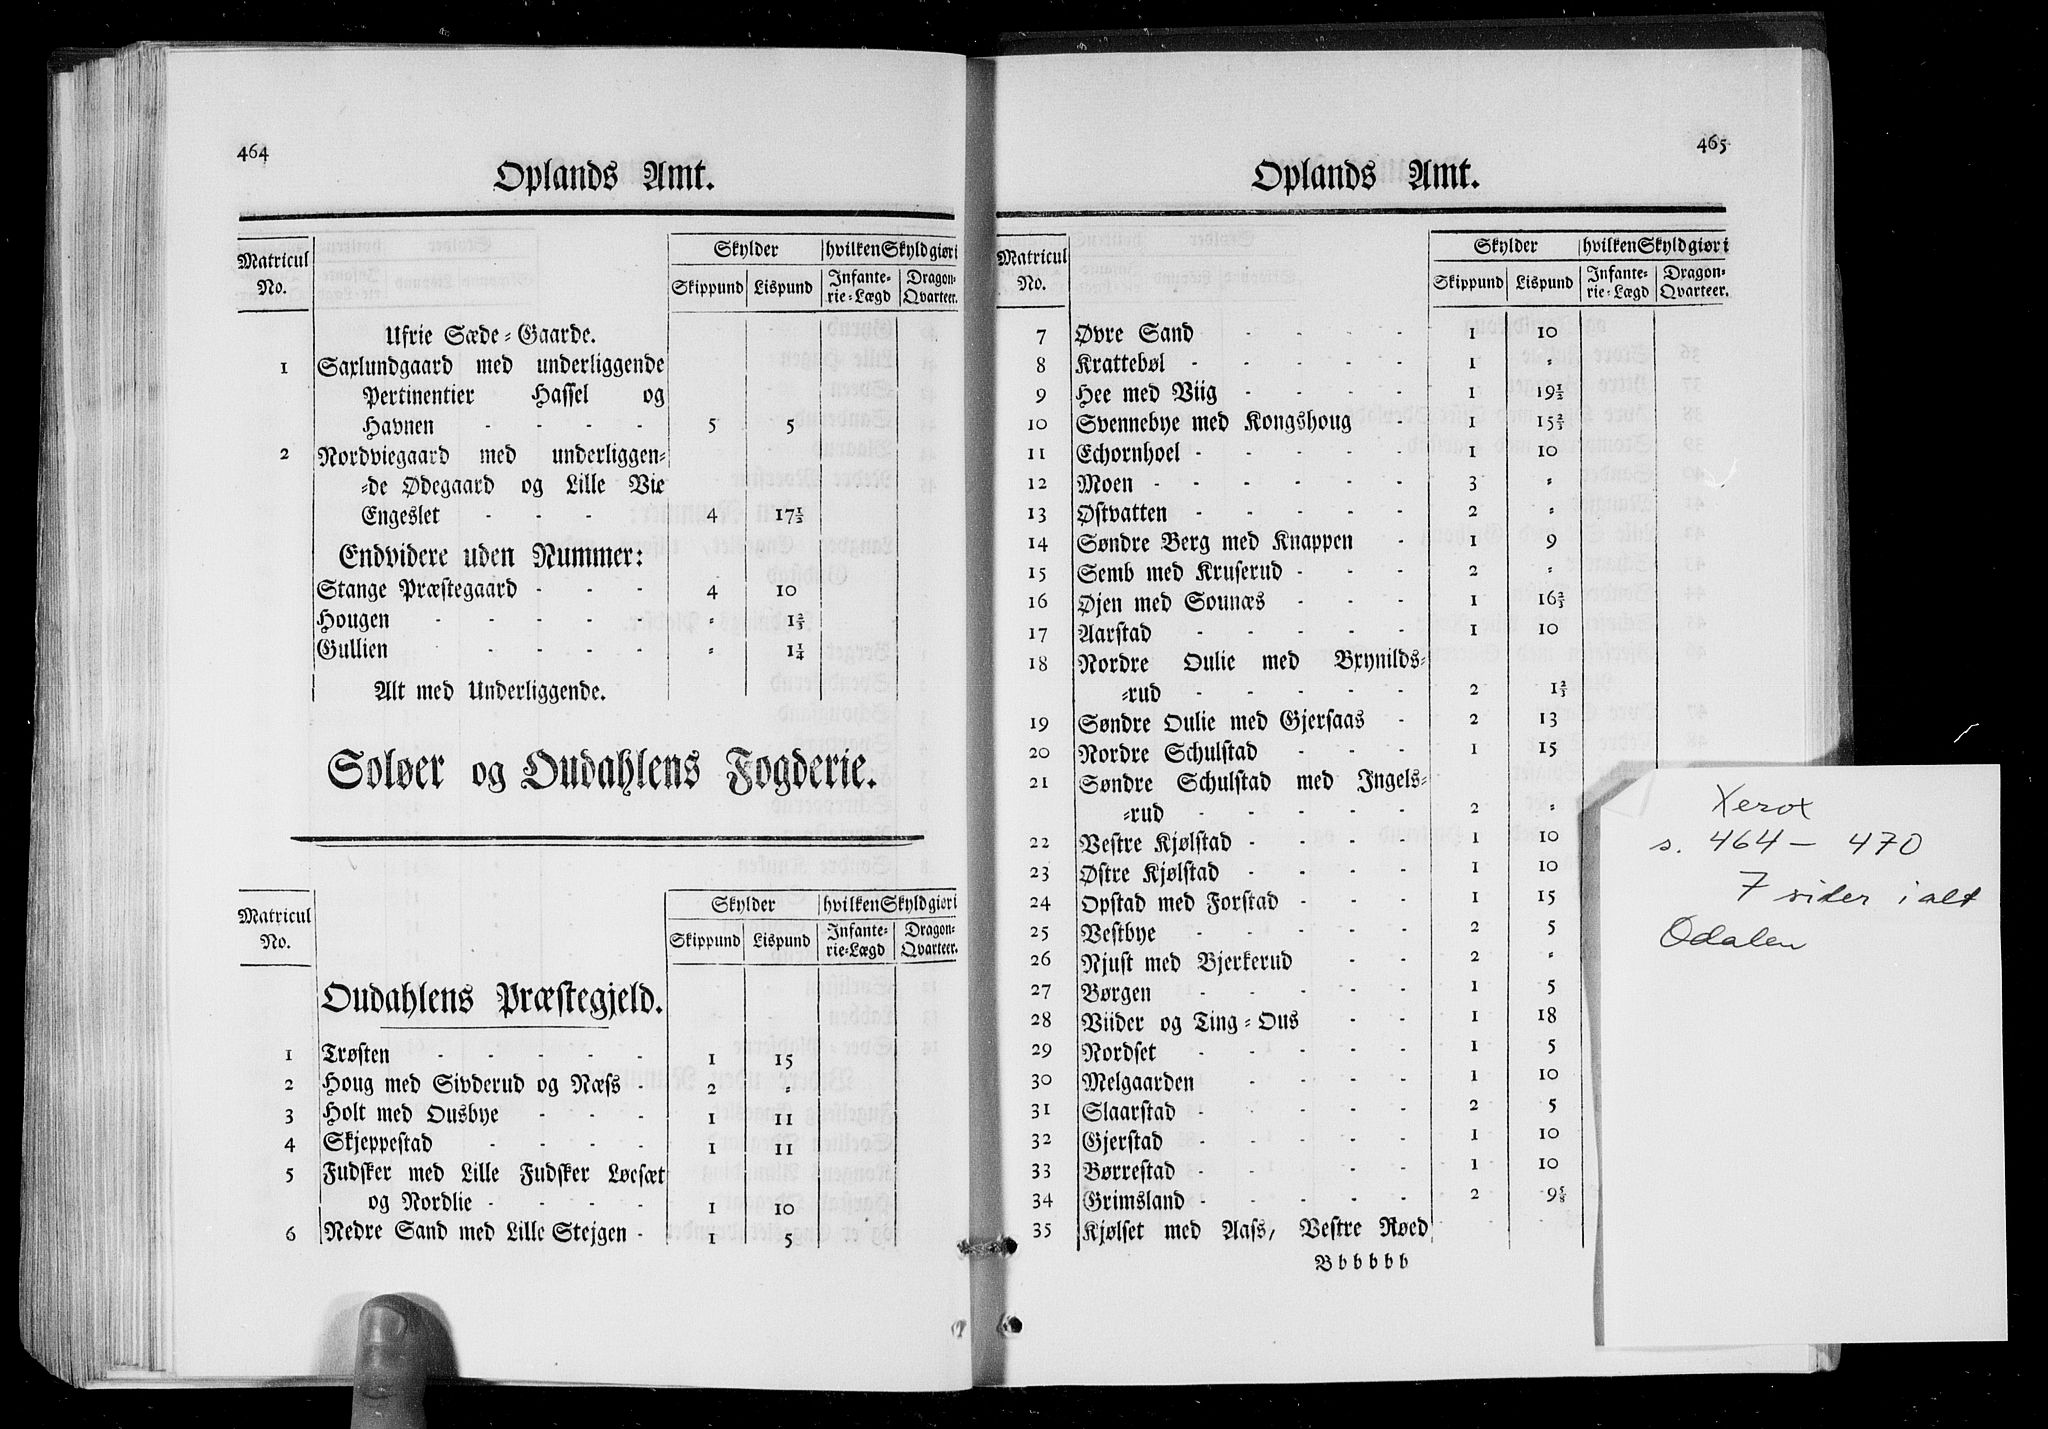 464
Oplands Amt.
Matricul No. | | Skylder | hvilken Skyld giør i
Skippund | Lispund | Infante-rie-Lægd | Dragon-Qvarteer.
Ufrie Sæde-Gaarde.
1 Saxlundgaard med underliggende
Pertinentier Hassel og
Havnen - - - - 5 5
2 Nordviegaard med underliggen-
-de Ødegaard og Lille Vie
Engeslet - - - 4 17 1/2
Endvidere uden Nummer:
Stange Præstegaard - - - 4 10
Hougen - - - - - " 1 2/3
Gullien - - - - - " 1 1/4
Alt med Underliggende.
Soløer og Oudahlens Fogderie.
Matricul No. | | Skylder | hvilken Skyld giør i
Skippund | Lispund | Infante-rie-Lægd | Dragon-Qvarteer.
Oudahlens Præstegjeld.
1 Trøsten - - - - - 1 15
2 Houg med Sivderud og Næss - 2 "
3 Holt med Ousbye - - - 1 11
4 Skjeppestad - - - - 1 11
5 Fudsker med Lille Fudsker Løesæt
og Nordlie - - - - 1 10
6 Nedre Sand med Lille Stejgen - 1 5
465
Oplands Amt.
Matricul No. | | Skylder | hvilken Skyld giør i
Skippund | Lispund | Infante-rie-Lægd | Dragon-Qvarteer.
7 Øvre Sand - - - - - 1 10
8 Krattebøl - - - - - 1 "
9 Hee med Viig - - - - 1 19 1/2
10 Svennebye med Kongshoug - 1 15 2/3
11 Echornhoel - - - - - 1 10
12 Moen - - - - - - 3 "
13 Østvatten - - - - - 2 "
14 Søndre Berg med Knappen - 1 9
15 Semb med Kruserud - - - 2 "
16 Øjen med Sounæs - - - 1 16 2/3
17 Aarstad - - - - - 1 10
18 Nordre Oulie med Brynilds-
-rud - - - - - 2 1 2/3
19 Søndre Oulie med Gjersaas - 2 13
20 Nordre Schulstad - - - 1 15
21 Søndre Schulstad med Ingels-
-rud - - - - - 2 "
22 Vestre Kjølstad - - - - 1 10
23 Østre Kjølstad - - - - 1 10
24 Opstad med Forstad - - - 1 15
25 Vestbye - - - - - 2 5
26 Njust med Bjerkerud - - 2 "
27 Børgen - - - - - 1 5
28 Viider og Ting-Ous - - 1 18
29 Nordset - - - - - 1 5
30 Melgaarden - - - - 1 10
31 Slaarstad - - - - - 2 5
32 Gjerstad - - - - - 1 10
33 Børrestad - - - - - 1 10
34 Grimsland - - - - - 2 9 5/8
35 Kjølset med Aass, Vestre Røed
Bbbbbb
Xerox
s. 464 - 470
7 sider i alt
Odalen